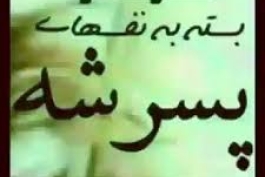 بسته به نفسهای
پسر شه